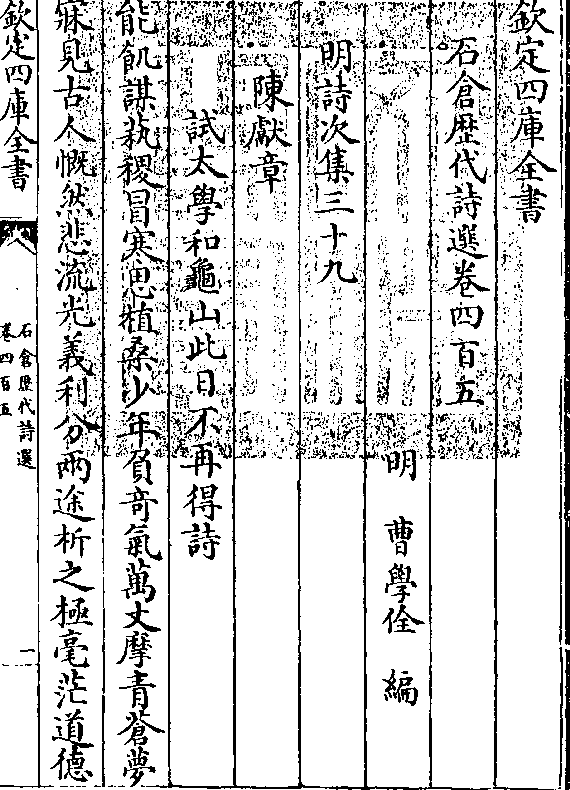 欽定四庫全書
石倉歴代詩選卷四百五
明 曹學佺 編
明詩次集三十九
陳獻章
試太學和龜山此日不再得詩
能飢謀蓺稷冒寒思植桑少年負竒氣萬丈摩青蒼夢
寐見古人慨然悲流光義利分兩途析之極毫茫道德
欽定四庫全書
石倉歴代詩選
卷四百五
一